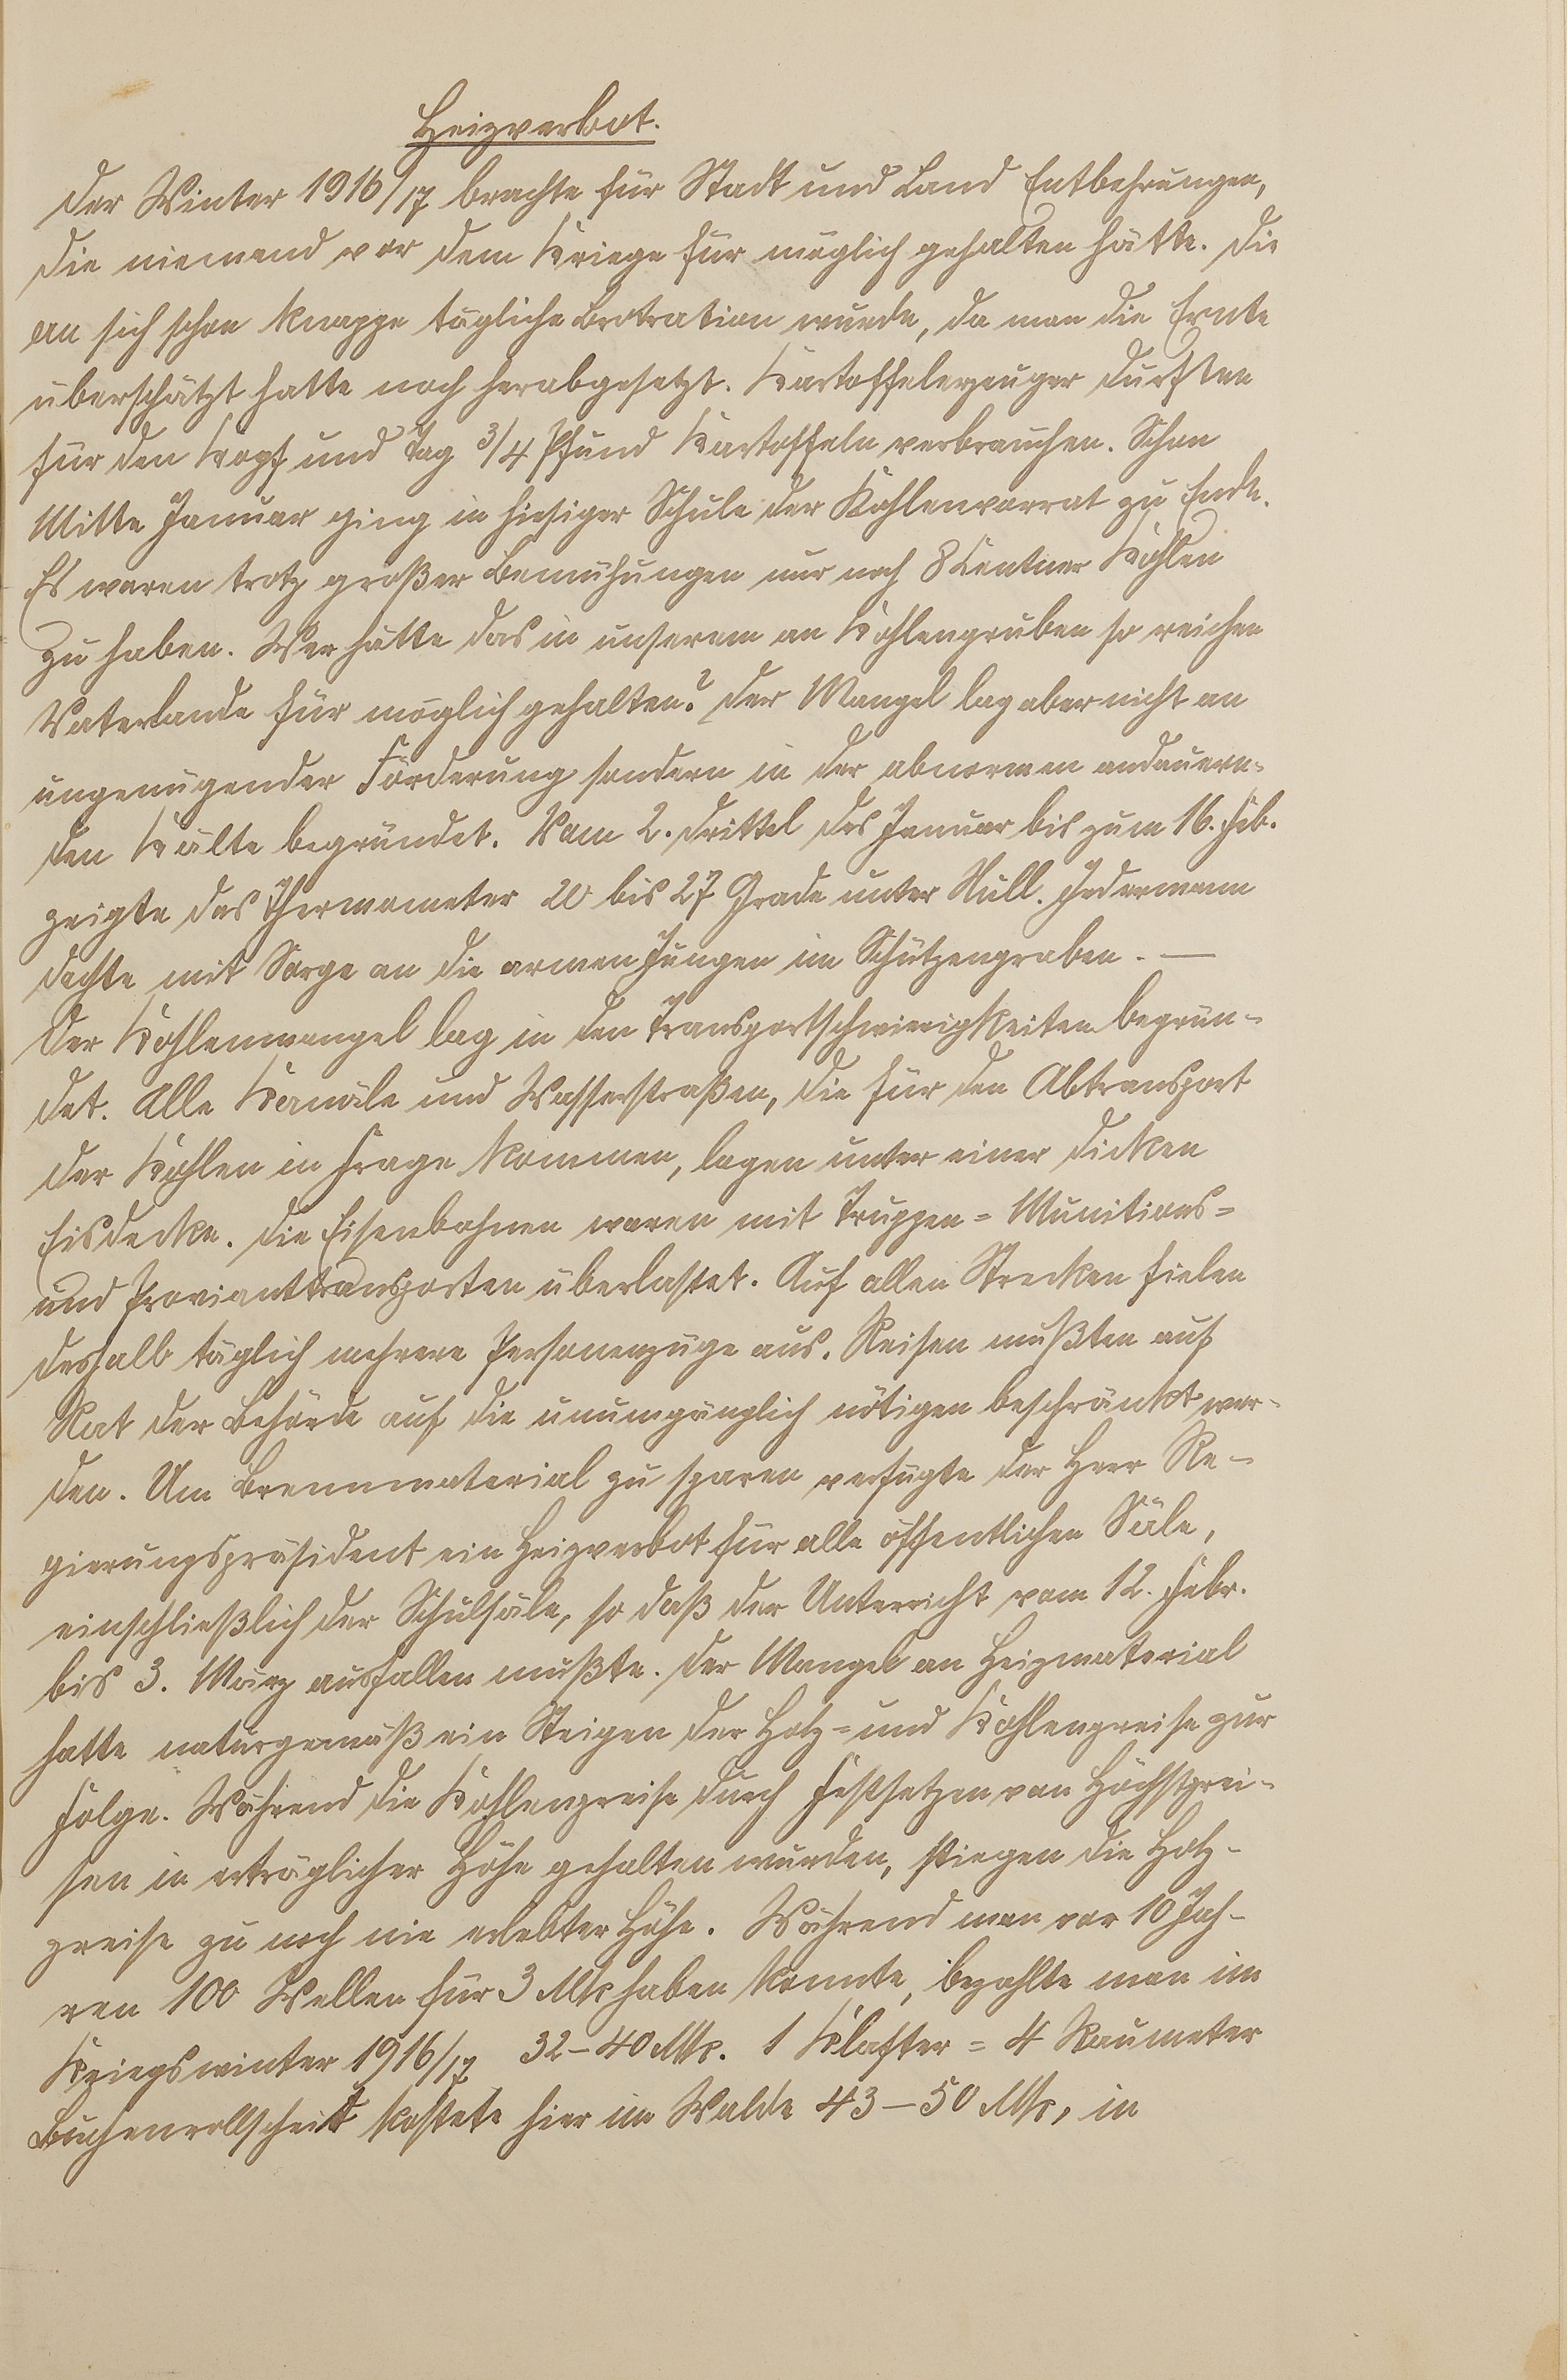 Heizverbot.
Der Winter 1916/17 brachte für Stadt und Land Entbehrungen,
die niemand vor dem Kriege für möglich gehalten hätte. Die
an sich schon knappe tägliche Brotration wurde, da man die Ernte
überschätzt hatte noch herabgesetzt. Kartoffelerzeuger durften
für den Kopf und Tag 3/4 Pfund Kartoffeln verbrauchen. Schon
Mitte Januar ging in hiesiger Schule der Kohlenvorrat zu Ende.
Es waren trotz großer Bemühungen nur noch 8 Centner Kohlen
zu haben. Wer hätte das in unserem an Kohlengruben so reichen
Vaterlande für möglich gehalten? Der Mangel lag aber nicht an
ungenügender Förderung sondern in der abnormen andauern-
den Kälte begründet. Vom 2. Drittel des Januar bis zum 16. Feb.
zeigte das Thermometer 20 bis 27 Grade unter Null. Jedermann
dachte mit Sorge an die armen Jungen im Schützengraben. —
Der Kohlenmangel lag in den Transportschwierigkeiten begrün-
det. Alle Kanäle und Wasserstraßen, die für den Abtransport
der Kohlen in Frage kommen, lagen unter einer dicken
Eisdecke. Die Eisenbahnen waren mit Truppen= Munitions=
und Provianttransporten überlastet. Auf allen Strecken fielen
deshalb täglich mehrere Personenzüge aus. Reisen mußten auf
Rat der Behörde auf die unumgänglich nötigen beschränkt wer-
den. Um Brennmaterial zu sparen verfügte der Herr Re-
gierungspräsident ein Heizverbot für alle öffentlichen Säle,
einschließlich der Schulsäle, so daß der Unterricht vom 12. Febr.
bis 3. März ausfallen mußte. Der Mangel an Heizmaterial
hatte naturgemäß ein Steigen der Holz= und Kohlenpreise zur
Folge. Während die Kohlenpreise durch Festsetzen von Höchstprei-
sen in erträglicher Höhe gehalten wurden, stiegen die Holz-
preise zu noch nie erlebter Höhe. Während man vor 10 Jah-
ren 100 Wellen für 3 Mk haben konnte, bezahlte man im
Kriegswinter 1916/17 32–40 Mk. 1 Klafter = 4 Raumeter
Buchenrollscheid kostete hier im Walde 43–50 Mk, in